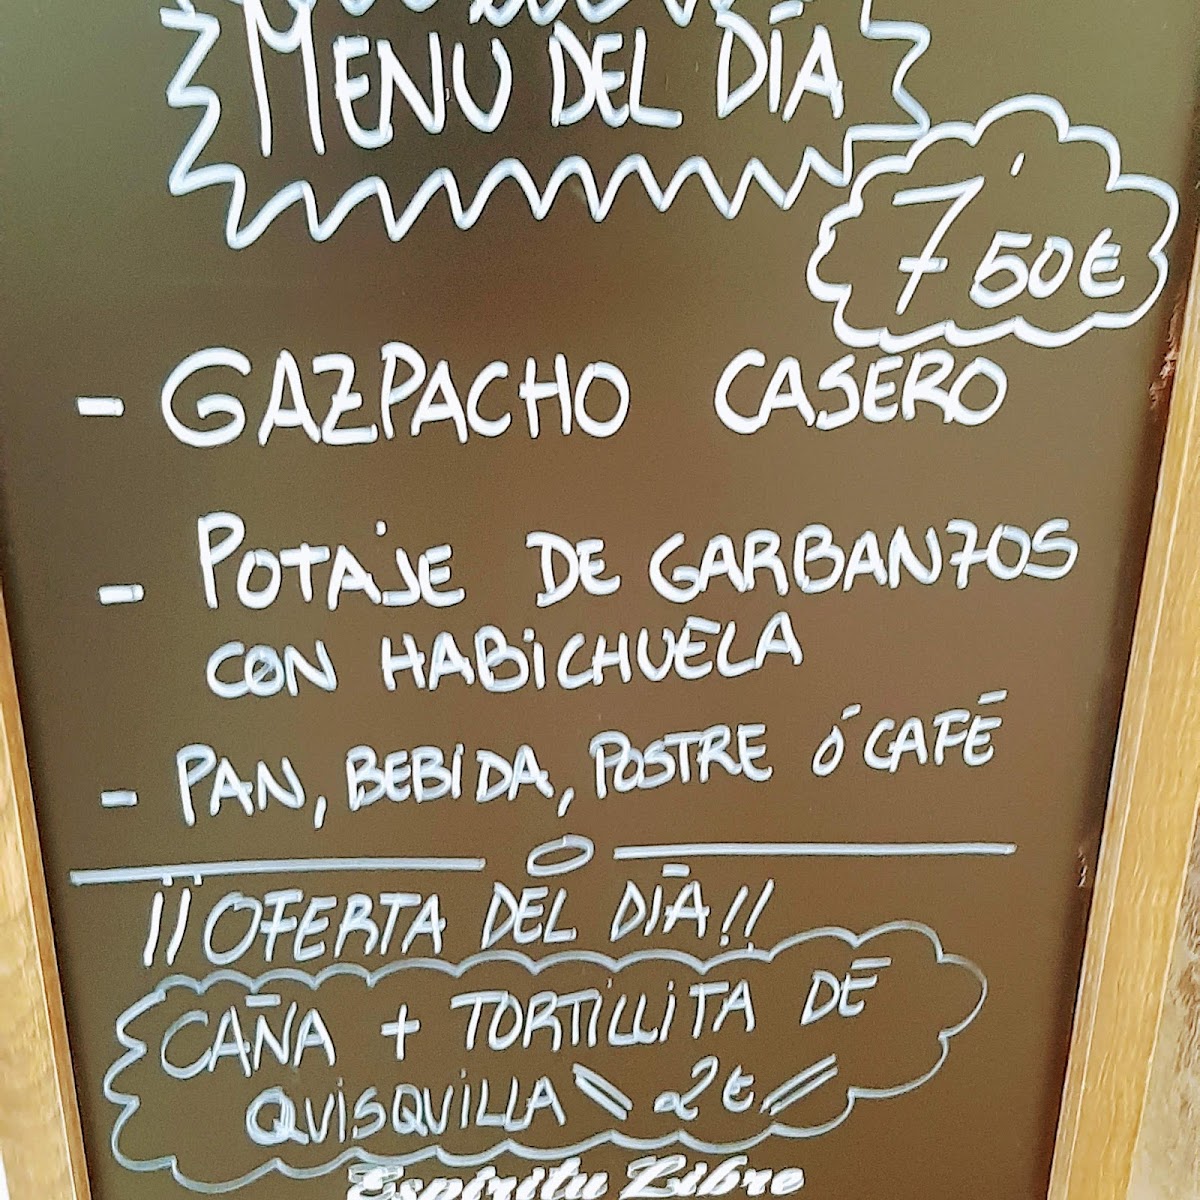 MENÚ DEL DÍA
7'50€
- GAZPACHO CASERO
- POTAJE DE GARBANZOS
CON HABICHUELA
- PAN, BEBIDA, POSTRE Ó CAFÉ
¡¡OFERTA DEL DÍA!!
CAÑA + TORTILLITA DE
QUISQUILLA \\ 2€ //
Espíritu Libre